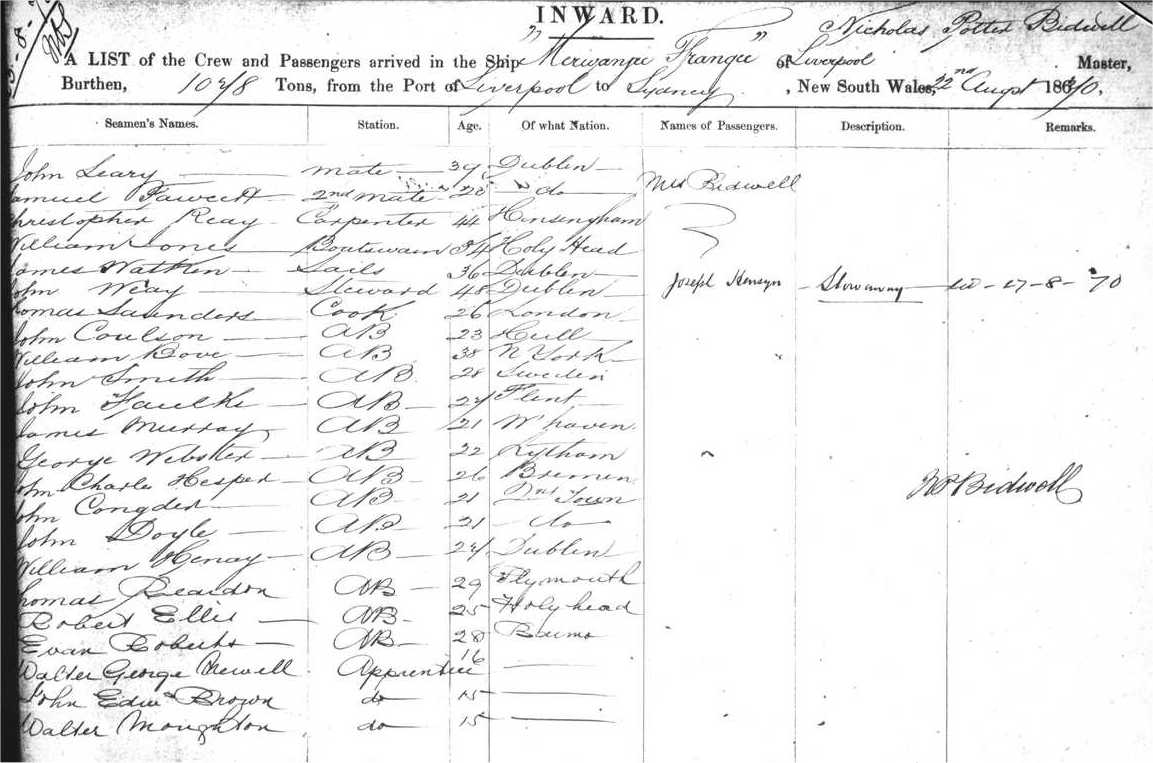 INWARD.
"Merwangee Frangee" Nicholas Potter Bidwell
A LIST of the Crew and Passengers arrived in the Ship of Liverpool Master,
Burthen, Tons, from the Port of Liverpool to Sydney, New South Wales, 22nd Augst 1870.
Seamen's Names. Station. Age. Of what Nation. Names of Passengers. Description. Remarks.
John Leary mate 39 Dublin
Samuel Fawcett 2nd mate do Mrs Bidwell
Christopher Reay Carpenter 44 Hensingham
William Jones Boatswain 34 Holy Head
James Watken Sails 36 Dublin
John Weay Steward 48 Dublin Joseph Stowaway 17-8-70
Thomas Saunders Cook 26 London
John Coulson AB 23 Hull
William Bove AB 38 N York
John Smith AB 28 Sweden
John Faulks AB 24 Flint
James Murray AB 21 W'haven
George Webster AB 22 Lytham
John Charles Hesper AB 26 Bremen
John Congder AB 21 Town NP Bidwell
John Doyle AB 21 do
William Henay AB 24 Dublin
Thomas Reardon AB 29 Plymouth
Robert Ellis AB 25 Holyhead
Evan Roberts AB 28
Walter George Newell Apprentice 16
John Edwd Brown do 15
Walter Moughton do 15